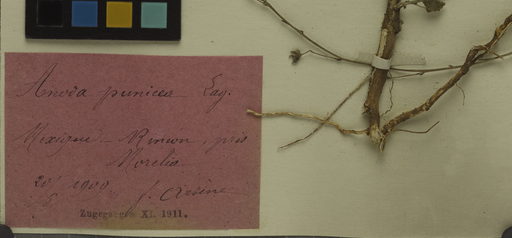 Anoda punicea Lag.
Mexique - Rincon, près
Morelia.
20 1909
f. Arsène
Zugegangen XI. 1911.